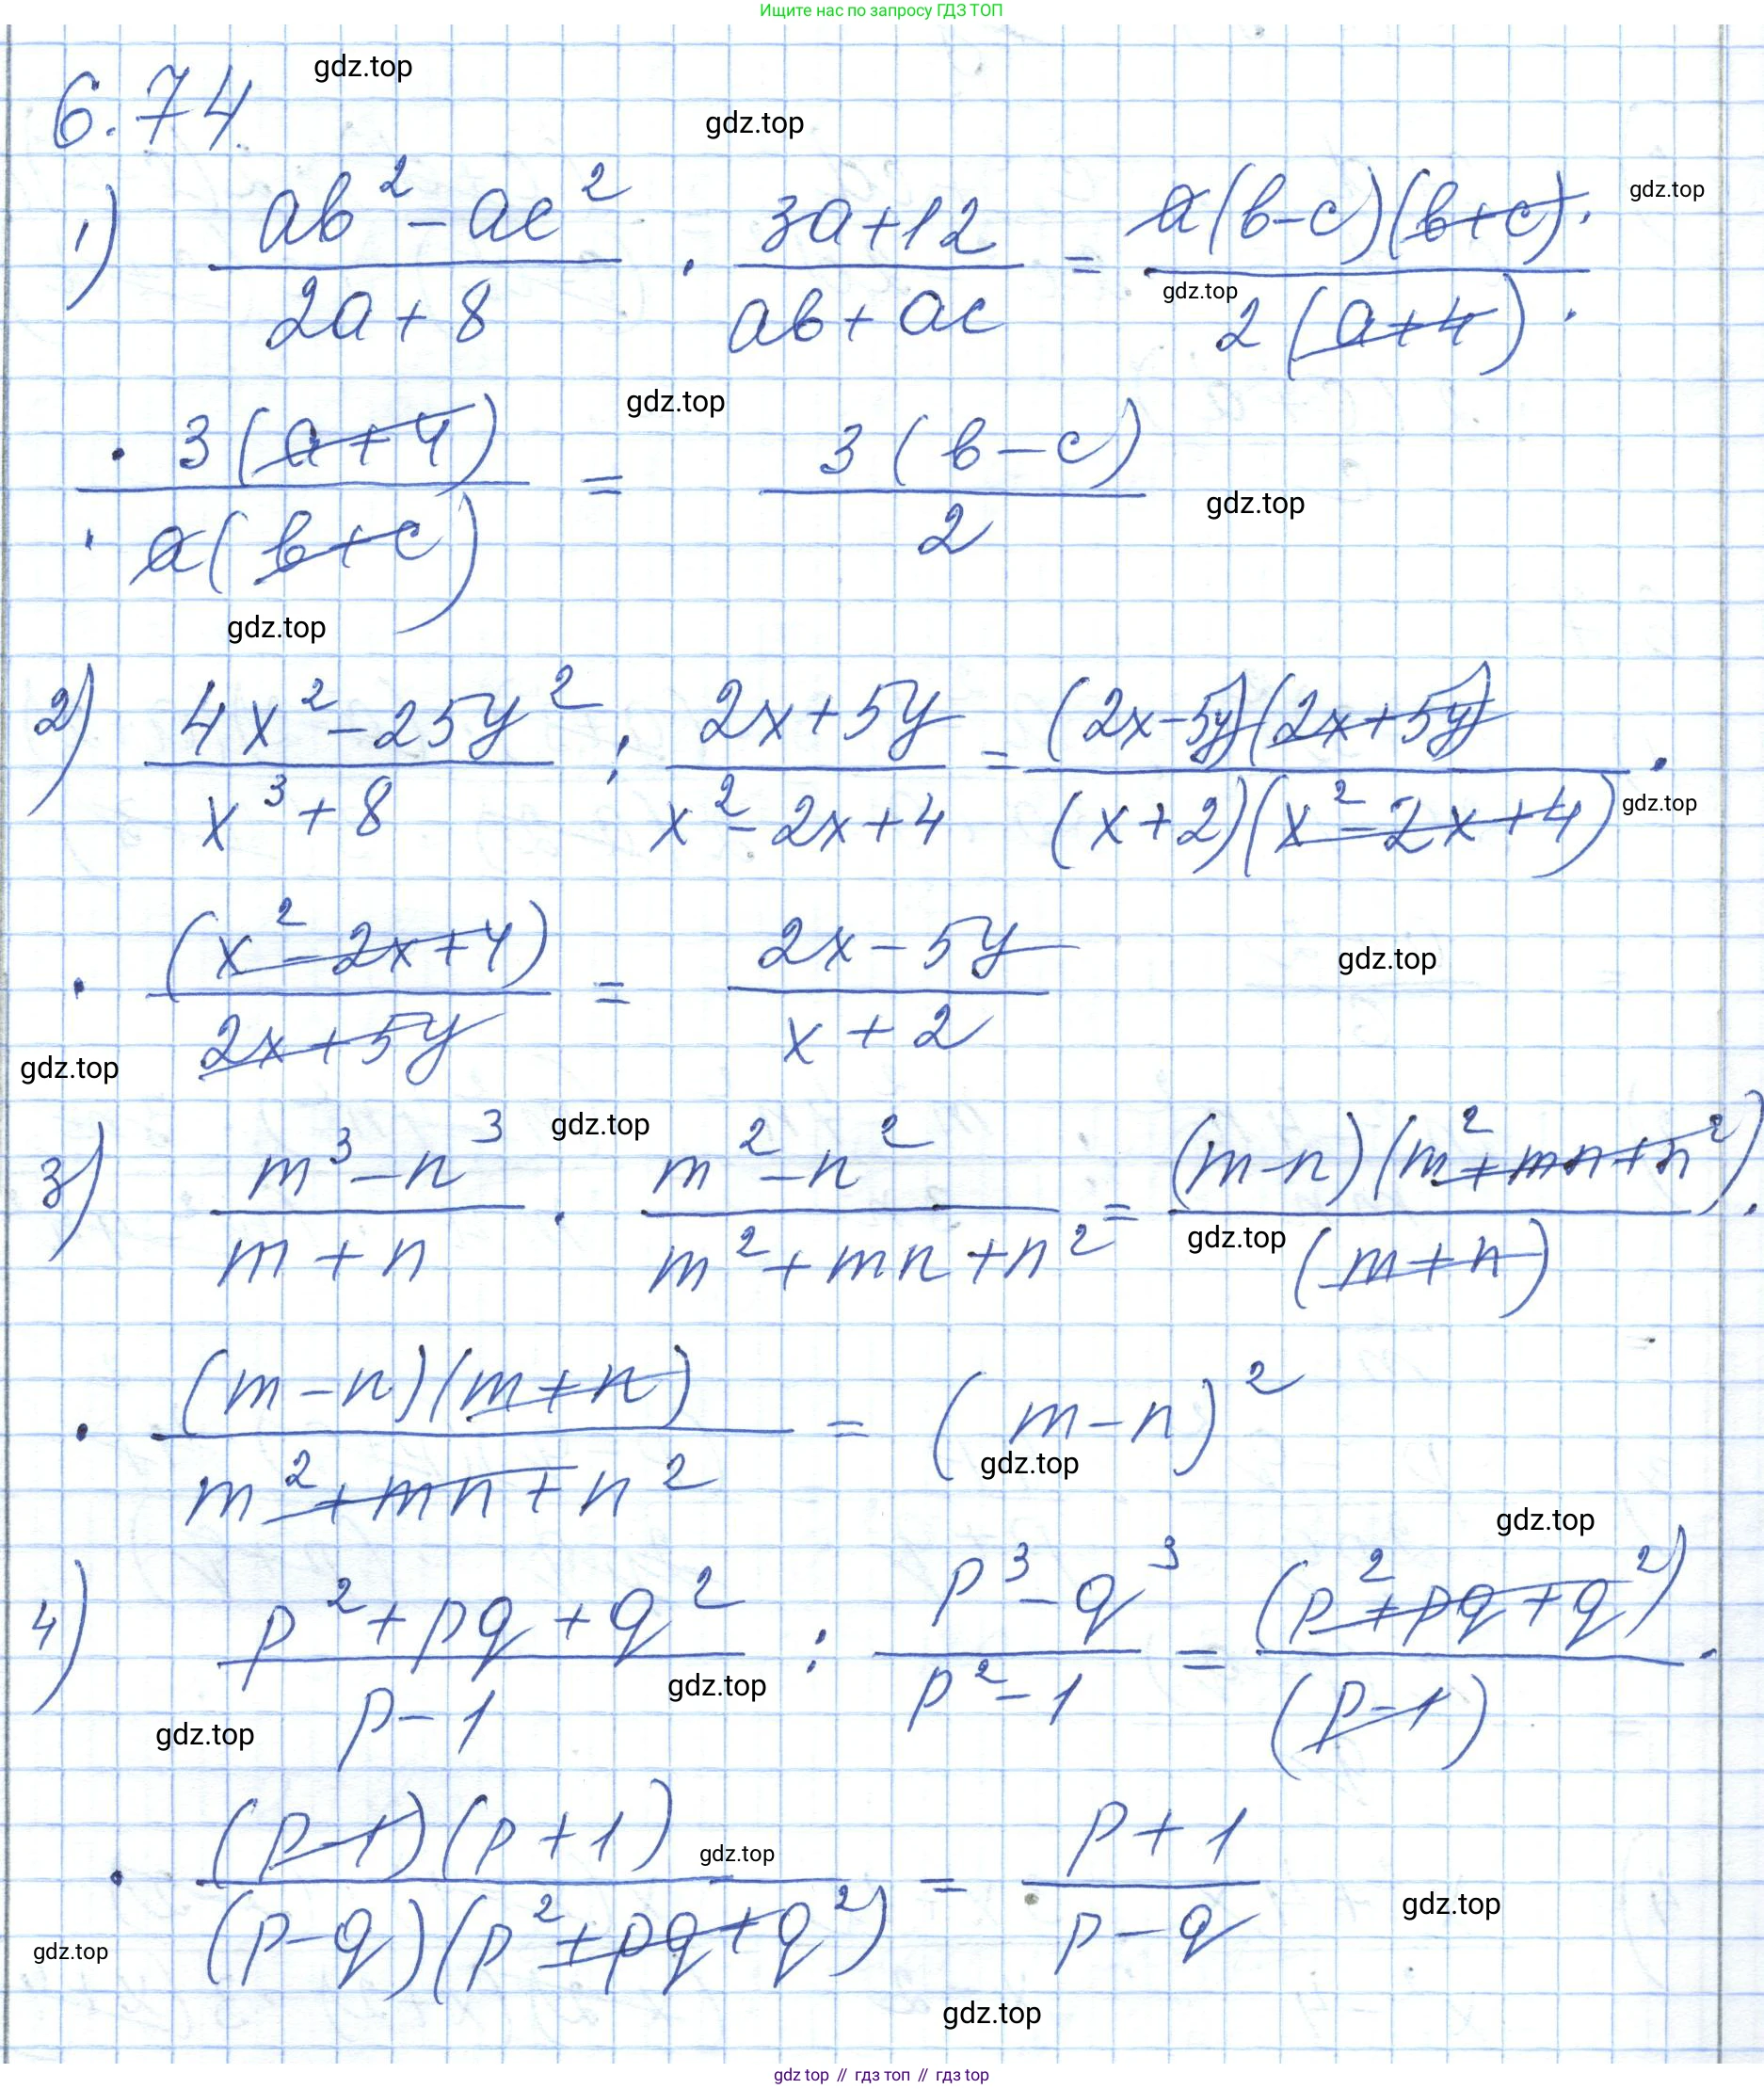 Ищите нас по запросу ГДЗ ТОП
gdz.top
6.74.
gdz.top
1) (ab² - ac²)/(2a + 8) · (3a + 12)/(ab + ac) = (a(b - c)(b + c) ·)/(2(a + 4) ·)
gdz.top
gdz.top
gdz.top
(· 3(a + 4))/(· a(b + c)) = (3(b - c))/2
gdz.top
gdz.top
2) (4x² - 25y²)/(x³ + 8) : (2x + 5y)/(x² - 2x + 4) = ((2x - 5y)(2x + 5y))/((x + 2)(x² - 2x + 4)) ·
gdz.top
· (x² - 2x + 4)/(2x + 5y) = (2x - 5y)/(x + 2)
gdz.top
gdz.top
gdz.top
3) (m³ - n³)/(m + n) · (m² - n²)/(m² + mn + n²) = ((m - n)(m² + mn + n²))/((m + n)) ·
gdz.top
· ((m - n)(m + n))/(m² + mn + n²) = (m - n)²
gdz.top
gdz.top
4) (p² + pq + q²)/(p - 1) : (p³ - q³)/(p² - 1) = ((p² + pq + q²))/((p - 1)) ·
gdz.top
gdz.top
· ((p - 1)(p + 1))/((p - q)(p² + pq + q²)) = (p + 1)/(p - q)
gdz.top
gdz.top
gdz.top
gdz.top
gdz top // гдз топ // гдз top